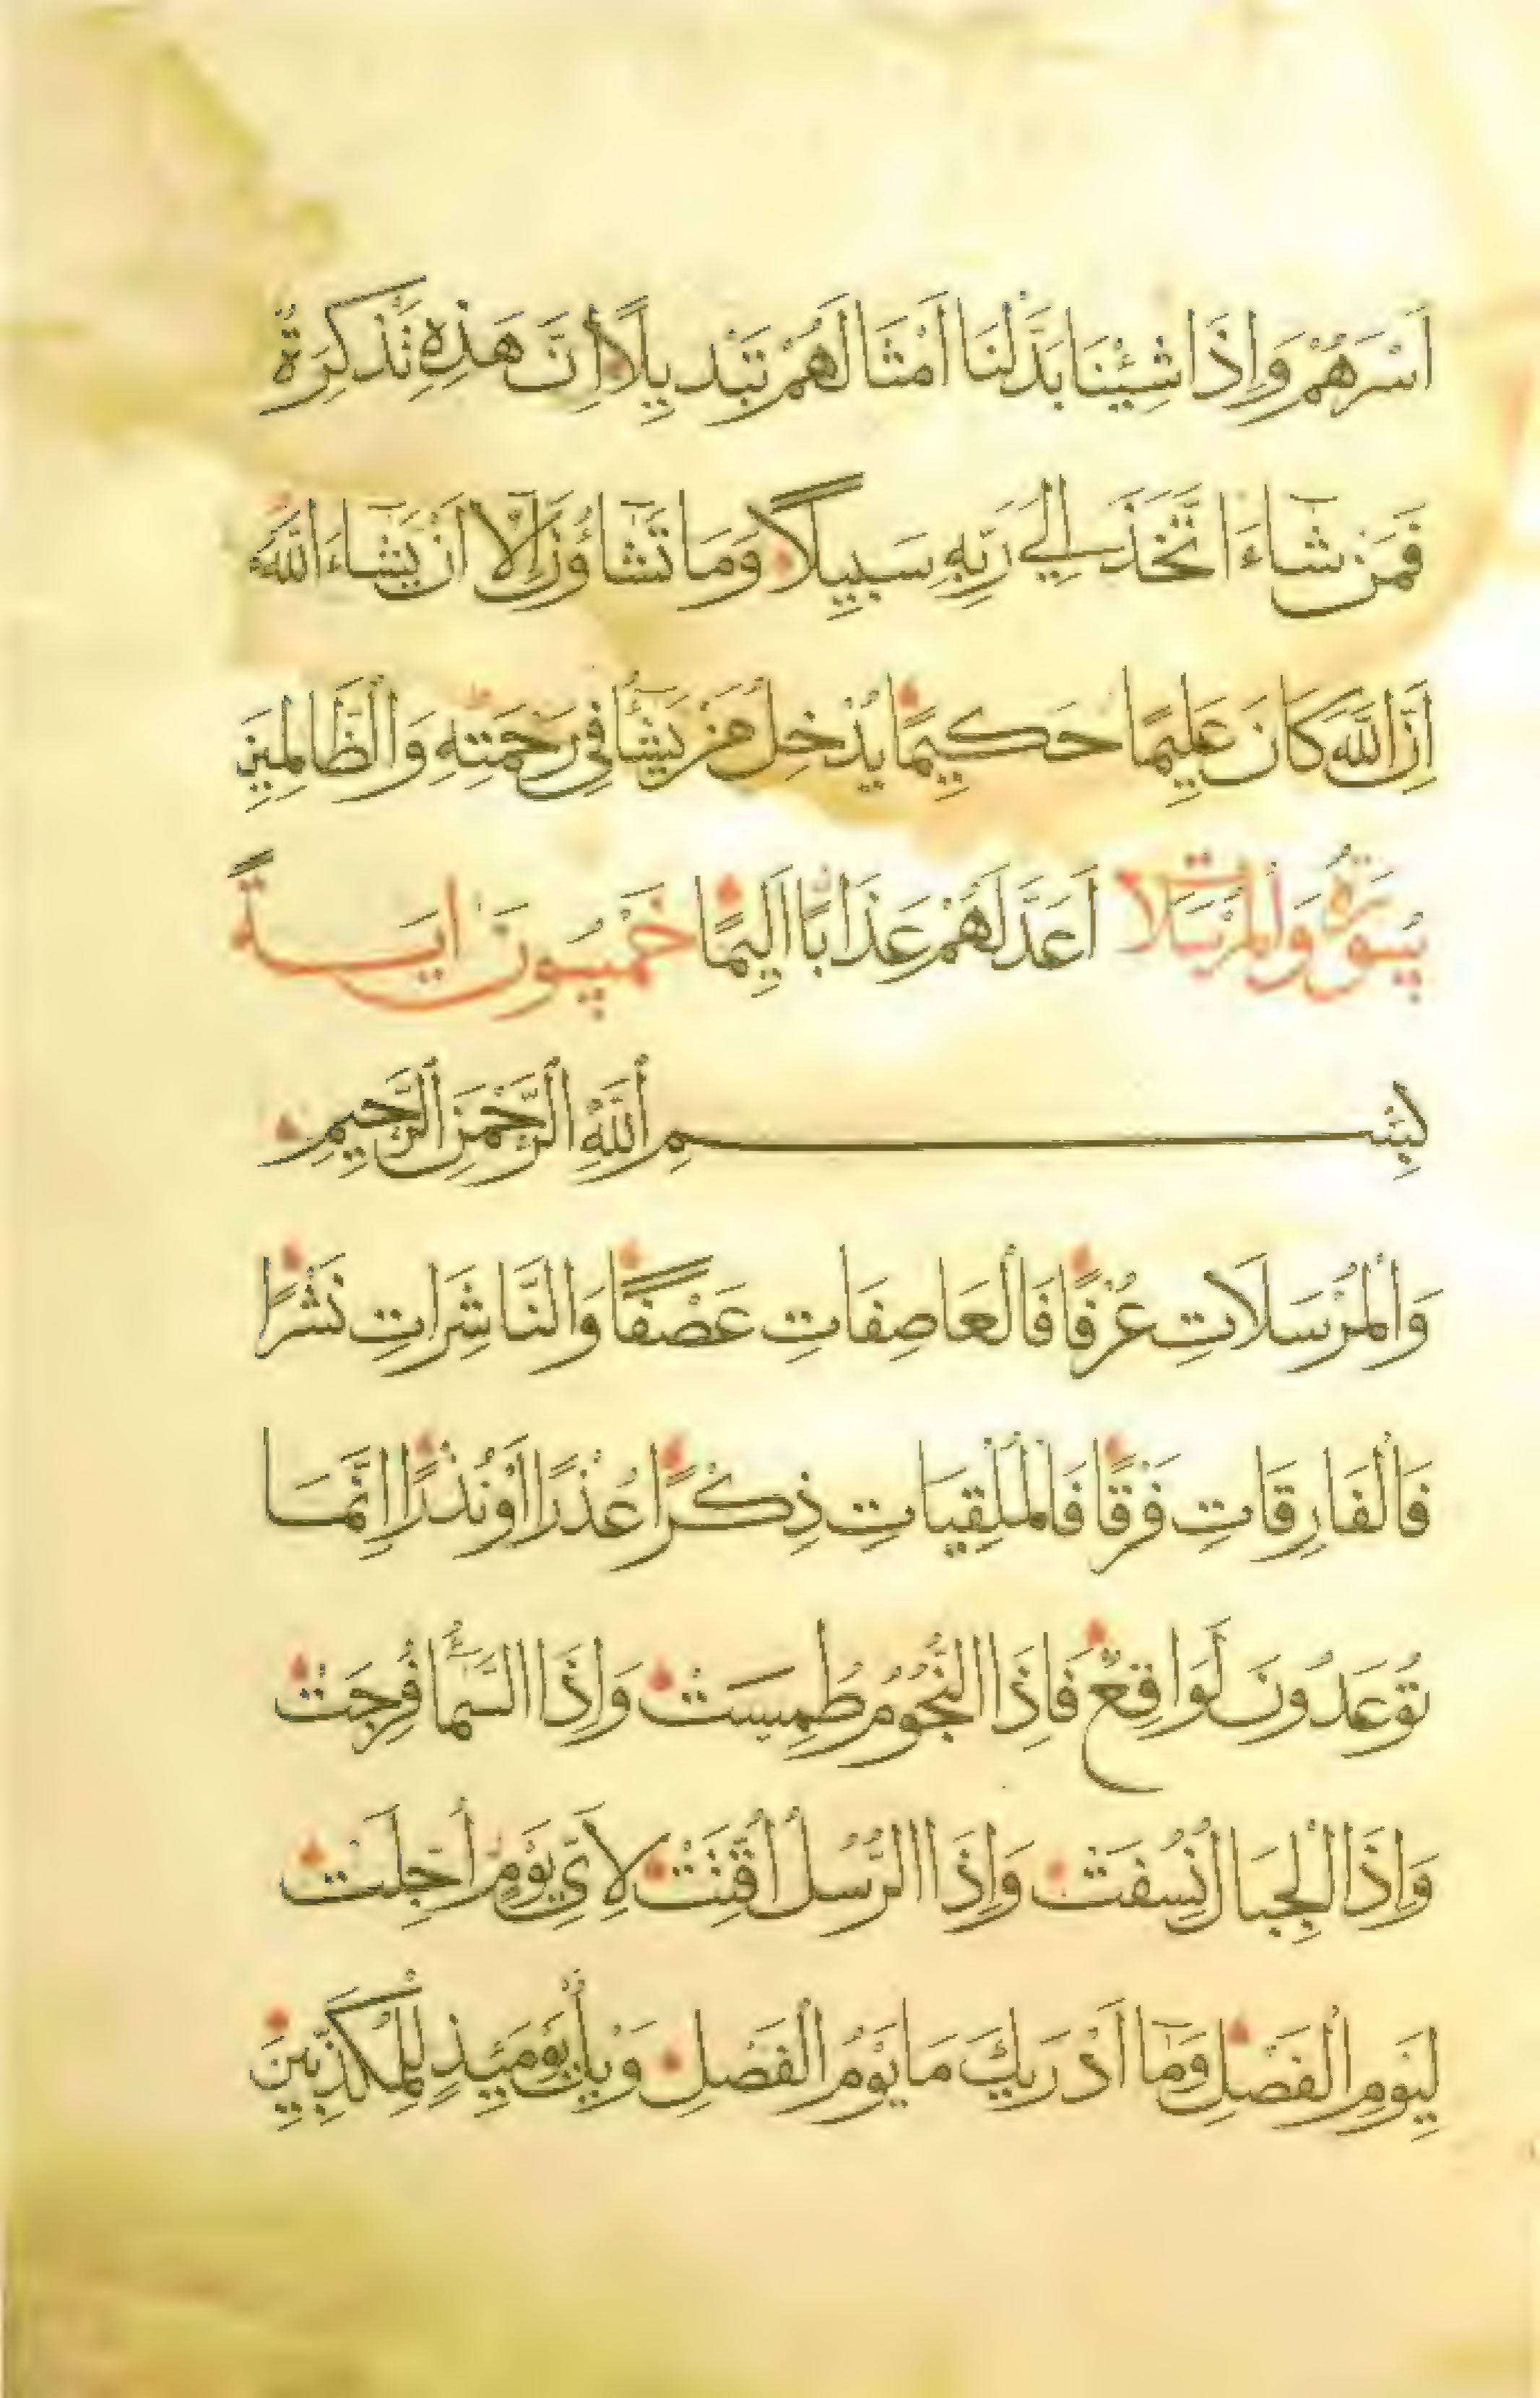 اَسْرَهُمْ وَاِذَا شِئْنَا بَدَّلْنَا اَمْثَالَهُمْ تَبْدِيلًا اِنَّ هَذِهِ تَذْكِرَةٌ
فَمَنْ شَاءَ اتَّخَذَ اِلَى رَبِّهِ سَبِيلًا وَمَا تَشَاؤُنَ اِلَّا اَنْ يَشَاءَ اللَّهُ
اِنَّ اللَّهَ كَانَ عَلِيمًا حَكِيمًا يُدْخِلُ مَنْ يَشَاءُ فِي رَحْمَتِهِ وَالظَّالِمِينَ
سُورَةُ وَالْمُرْسَلَات اَعَدَّ لَهُمْ عَذَابًا اَلِيمًا خَمْسُونَ اٰيَةً
بِسْمِ اللَّهِ الرَّحْمَنِ الرَّحِيمِ
وَالْمُرْسَلَاتِ عُرْفًا فَالْعَاصِفَاتِ عَصْفًا وَالنَّاشِرَاتِ نَشْرًا
فَالْفَارِقَاتِ فَرْقًا فَالْمُلْقِيَاتِ ذِكْرًا عُذْرًا اَوْ نُذْرًا اِنَّمَا
تُوعَدُونَ لَوَاقِعٌ فَاِذَا النُّجُومُ طُمِسَتْ وَاِذَا السَّمَاءُ فُرِجَتْ
وَاِذَا الْجِبَالُ نُسِفَتْ وَاِذَا الرُّسُلُ اُقِّتَتْ لِاَيِّ يَوْمٍ اُجِّلَتْ
لِيَوْمِ الْفَصْلِ وَمَا اَدْرَيكَ مَا يَوْمُ الْفَصْلِ وَيْلٌ يَوْمَئِذٍ لِلْمُكَذِّبِينَ